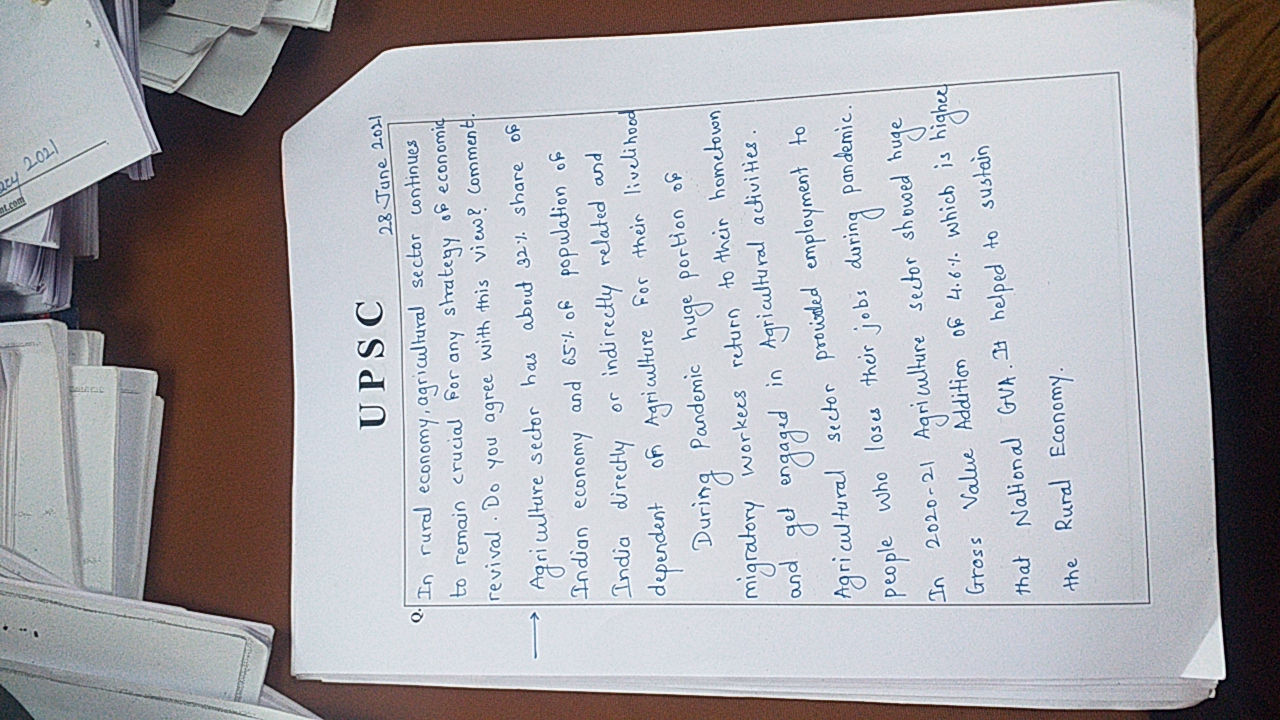 UPSC
28 June 2021
Q. In rural economy, agricultural sector continues
to remain crucial for any strategy of economic
revival. Do you agree with this view? Comment.
→ Agriculture sector has about 32% share of
Indian economy and 65% of population of
India directly or indirectly related and
dependent of Agriculture for their livelihood
During Pandemic huge portion of
migratory workers return to their hometown
and get engaged in Agricultural activities.
Agricultural sector provided employment to
people who loses their jobs during pandemic.
In 2020-21 Agriculture sector showed huge
Gross Value Addition of 4.6% which is higher
that National GVA. It helped to sustain
the Rural Economy.
2021